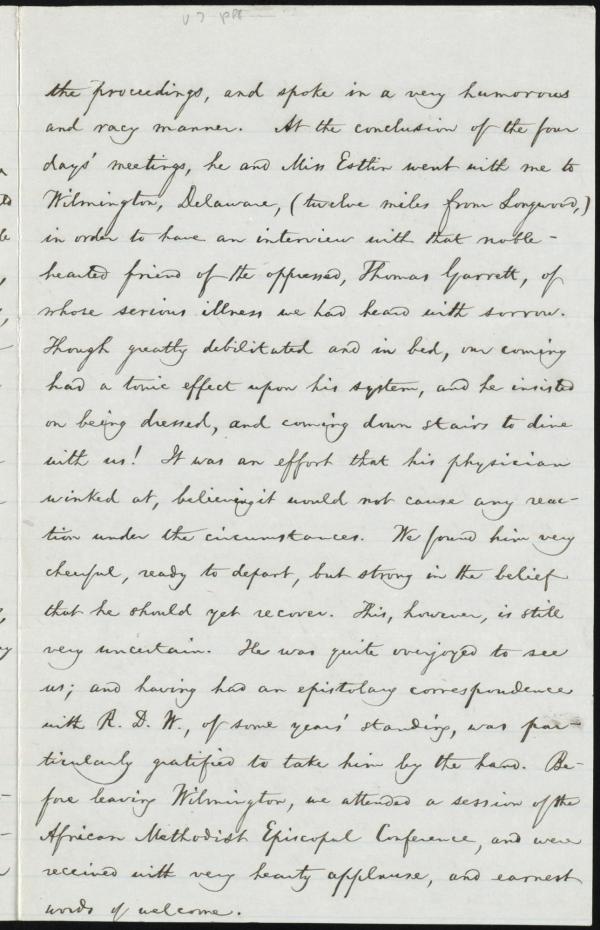 the proceedings, and spoke in a very humorous
and racy manner. At the conclusion of the four
days' meetings, he and Miss Estlin went with me to
Wilmington, Delaware, (twelve miles from Longwood,)
in order to have an interview with that noble-
hearted friend of the oppressed, Thomas Garrett, of
whose serious illness we had heard with sorrow.
Though greatly debilitated and in bed, our coming
had a tonic effect upon his system, and he insisted
on being dressed, and coming down stairs to dine
with us! It was an effort that his physician
winked at, believing it would not cause any reac-
tion under the circumstances. We found him very
cheerful, ready to depart, but strong in the belief
that he should yet recover. This, however, is still
very uncertain. He was quite overjoyed to see
us; and having had an epistolary correspondence
with R. D. W., of some years' standing, was par-
ticularly gratified to take him by the hand. Be-
fore leaving Wilmington, we attended a session of the
African Methodist Episcopal Conference, and were
received with very hearty applause, and earnest
words of welcome.